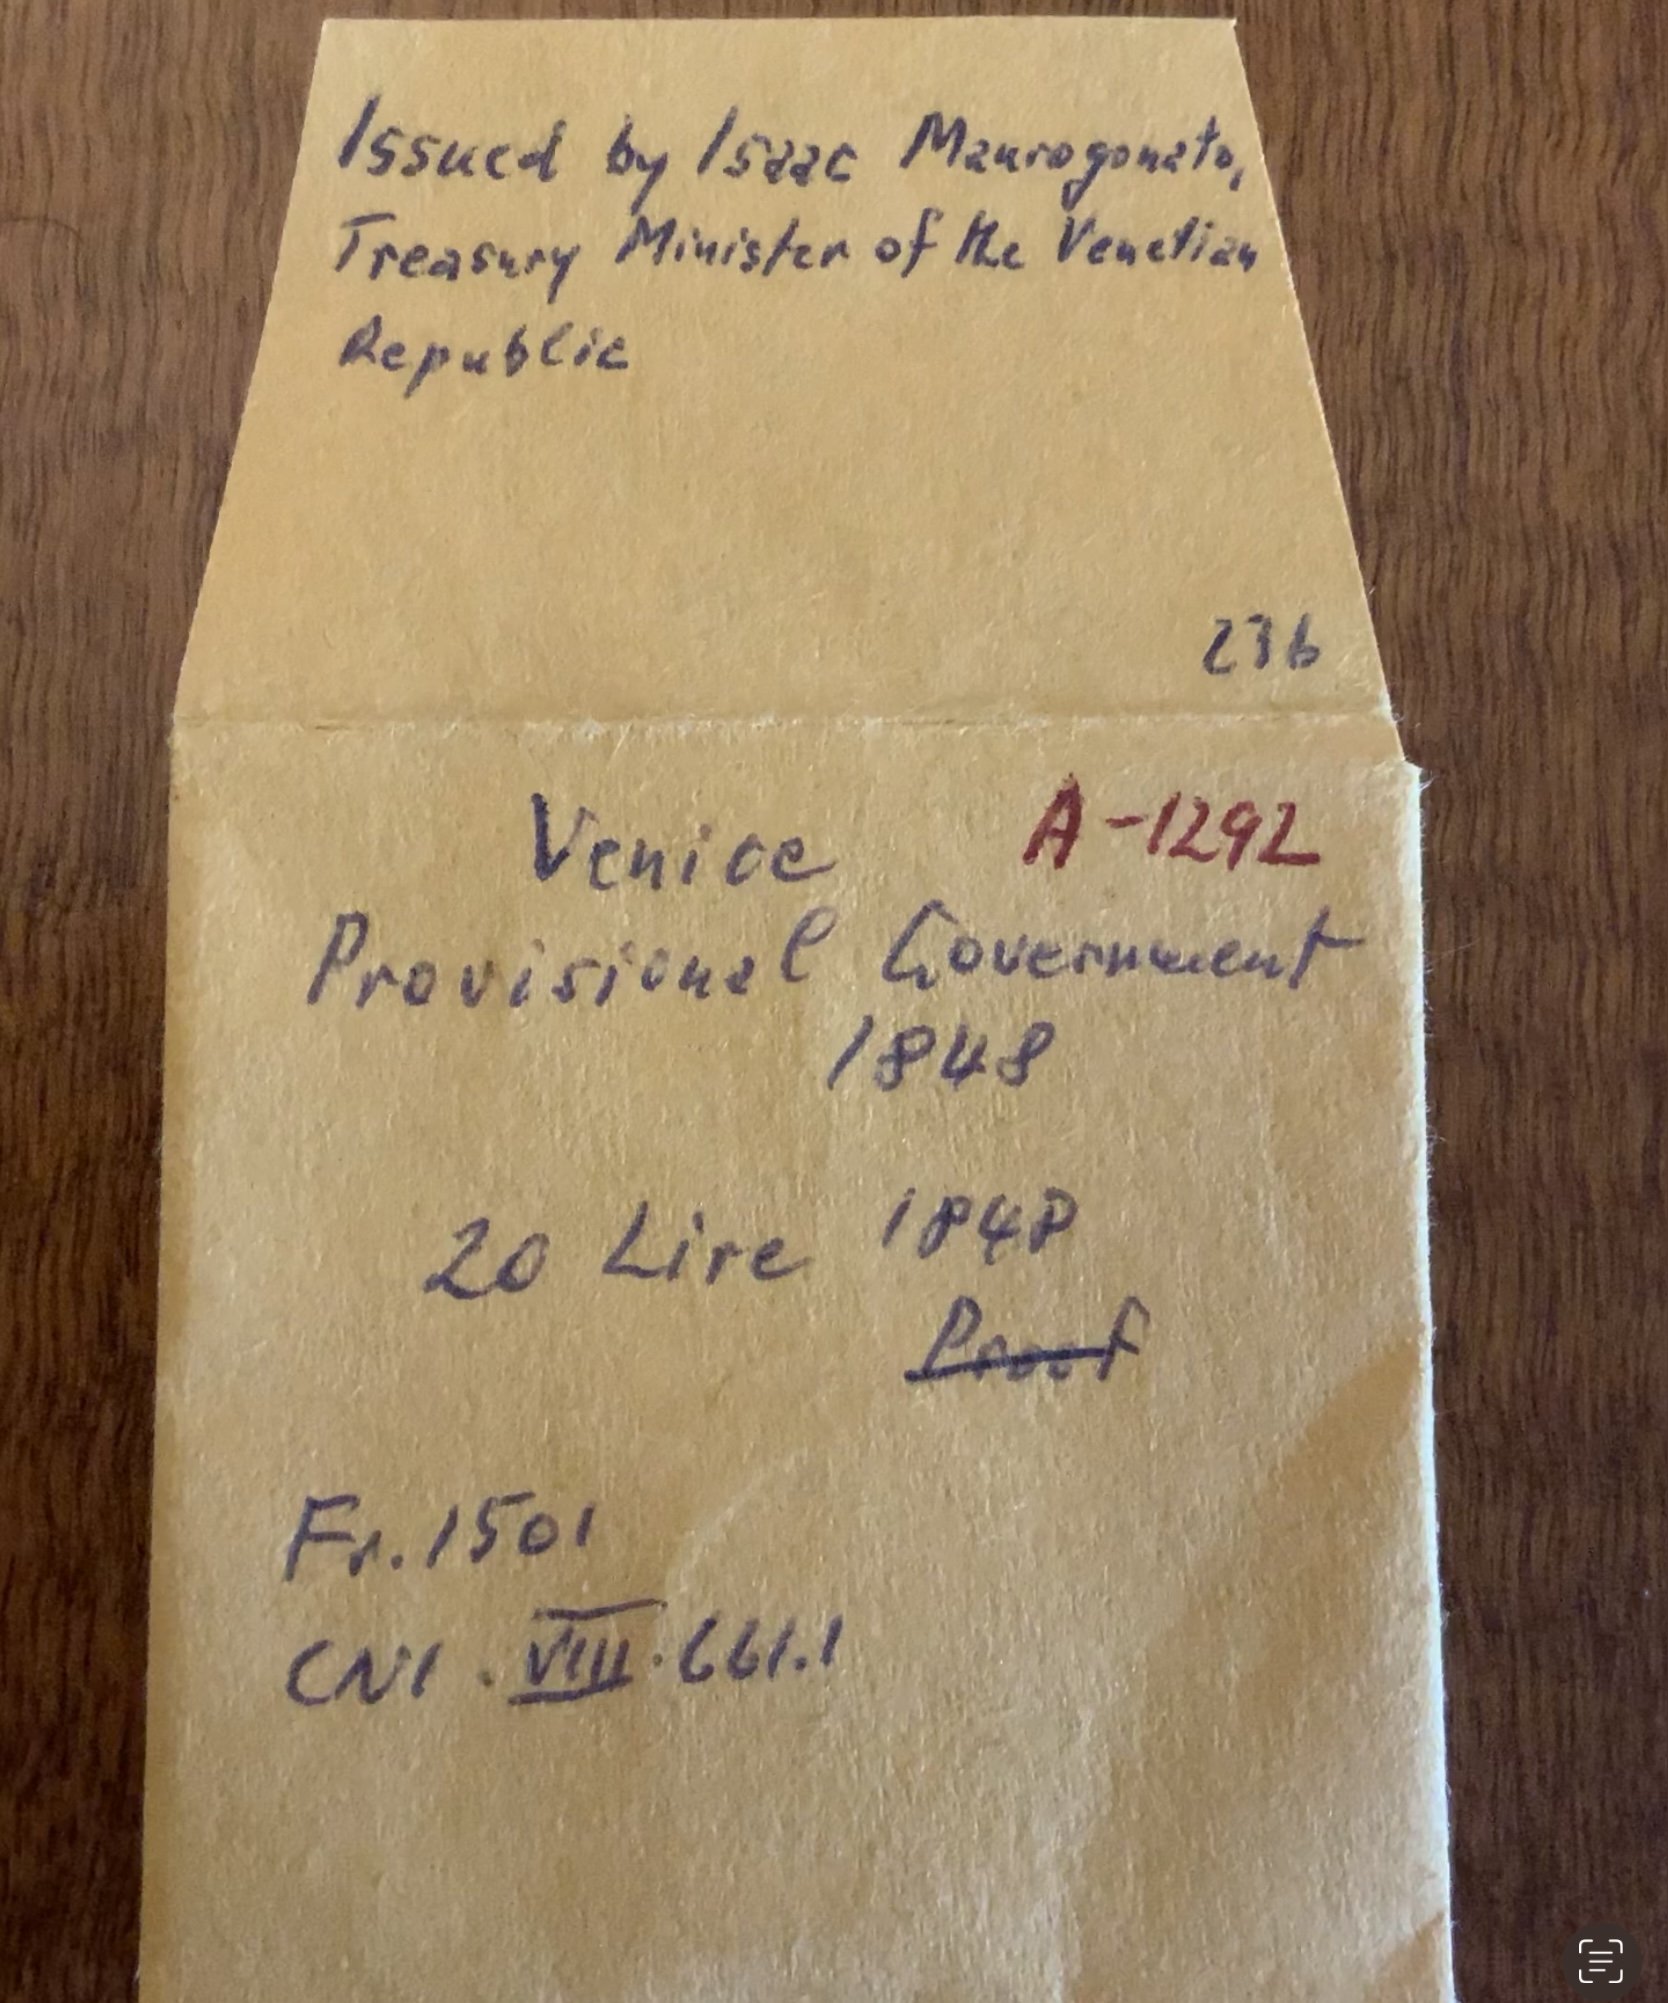 Issued by Isaac Maurogonato,
Treasury Minister of the Venetian
Republic
236
Venice A-1292
Provisional Government
1848
20 Lire 1848
Proof
Fr. 1501
CNI. VIII. 661.1